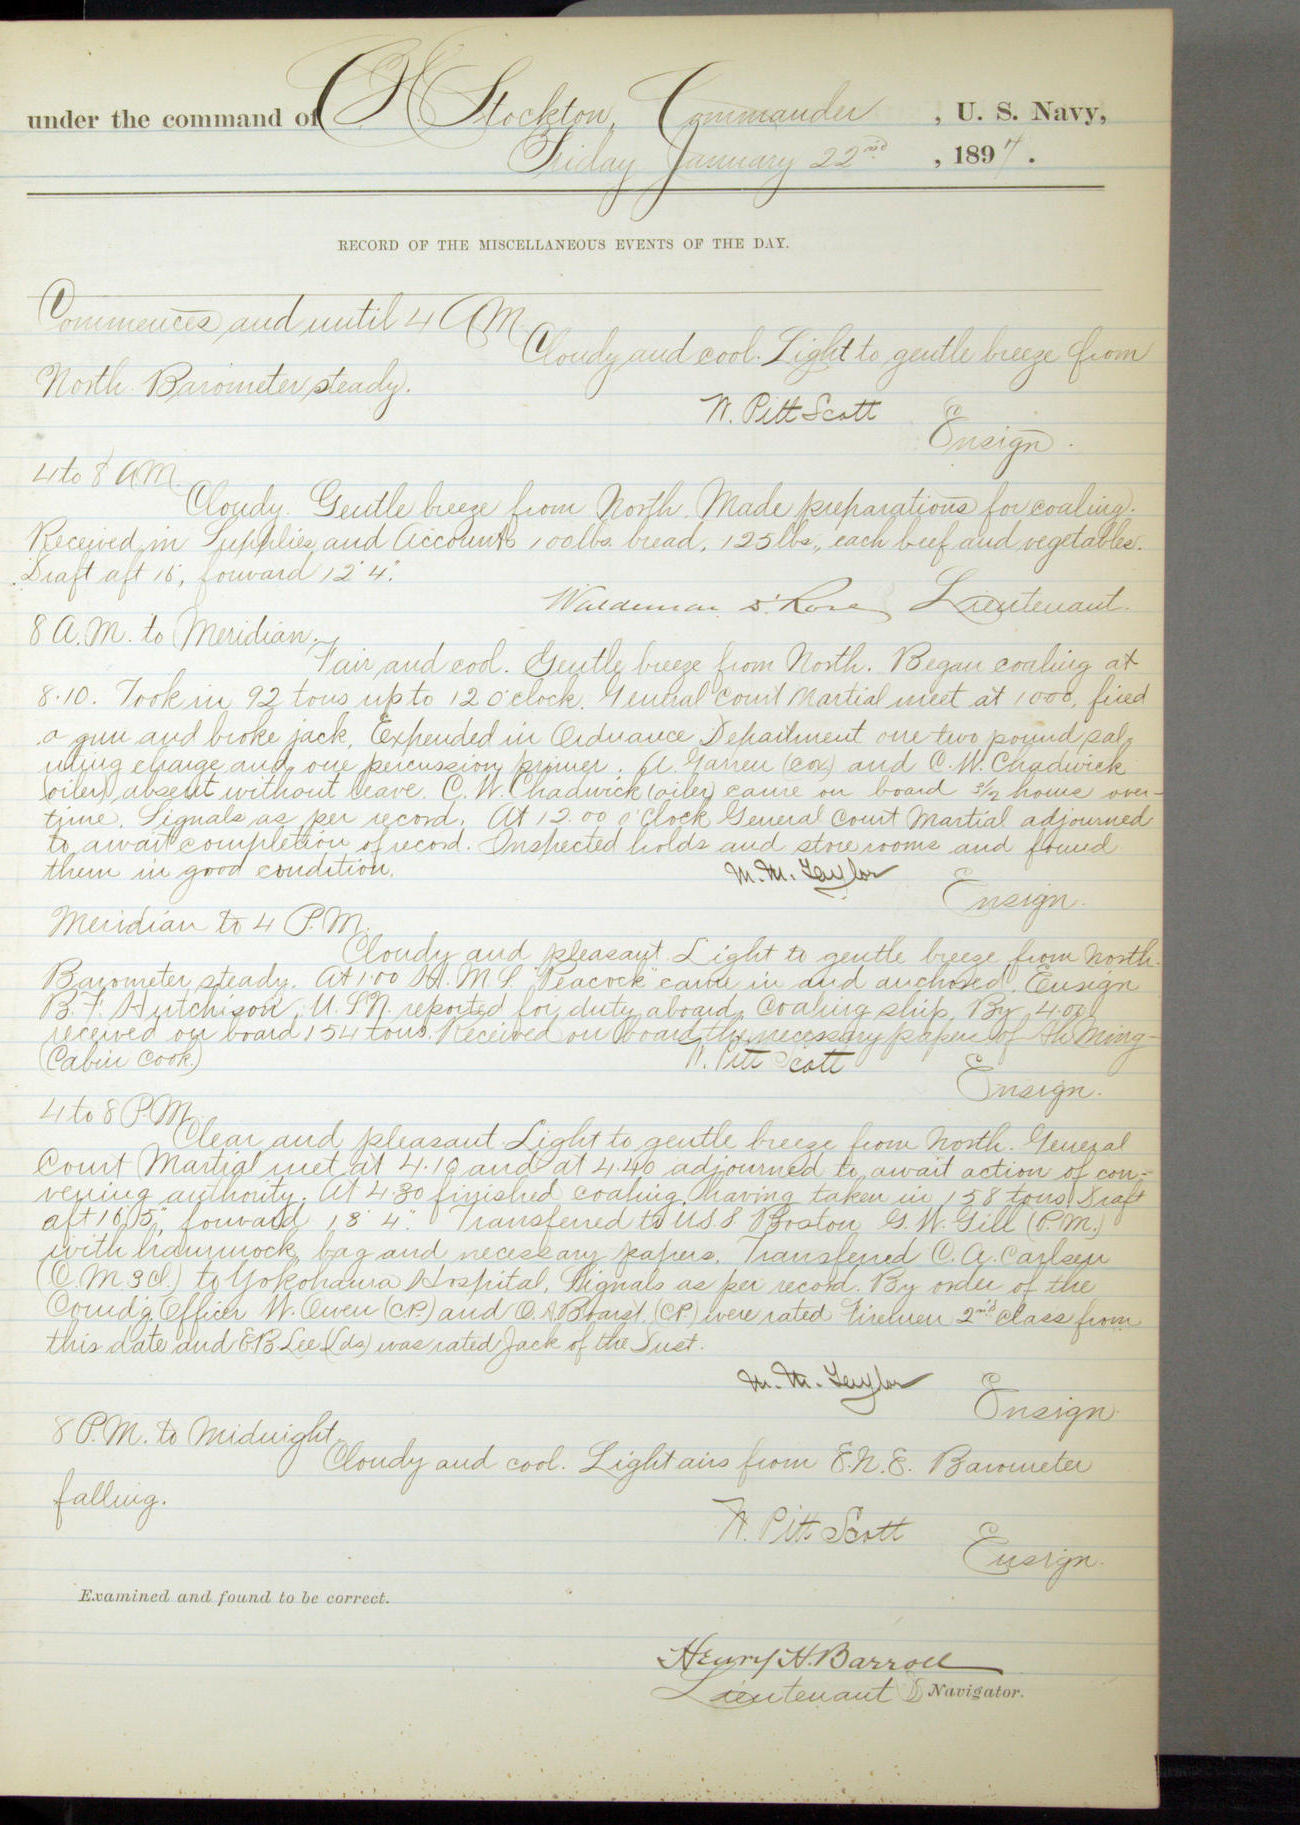 under the command of C H Stockton, Commander, U. S. Navy,
Friday January 22nd, 1897.
RECORD OF THE MISCELLANEOUS EVENTS OF THE DAY.
Commences and until 4 AM.
Cloudy and cool. Light to gentle breeze from
North. Barometer steady.
W. Pitt Scott
Ensign.
4 to 8 AM.
Cloudy. Gentle breeze from North. Made preparations for coaling.
Received in Supplies and Accounts 100 lbs bread, 125 lbs, each beef and vegetables.
Draft aft forward 12' 4".
Lieutenant.
8 A.M. to Meridian.
Fair and cool. Gentle breeze from North. Began coaling at
8.10. Took in 92 tons up to 12 o'clock. General Court Martial meet at 1000, fired
a gun and broke jack. Expended in Ordnance Department one two pound sal-
uting charge and one percussion primer. A. (cox) and C. W. Chadwick
(oiler) absent without leave. C. W. Chadwick (oiler) came on board 3½ hours over-
time. Signals as per record. At 12.00 o'clock General Court Martial adjourned
to await completion of record. Inspected holds and store rooms and found
them in good condition.
M. M. Taylor
Ensign.
Meridian to 4 P.M.
Cloudy and pleasant. Light to gentle breeze from North.
Barometer steady. At 1.00 H. M. S. "Peacock" came in and anchored. Ensign
B. F. Hutchison, U. S. N. reported for duty aboard. Coaling ship. By 4.00
received on board 154 tons. Received on board the necessary papers of Ah Ming-
(Cabin Cook.)
W. Pitt Scott
Ensign.
4 to 8 P.M.
Clear and pleasant. Light to gentle breeze from North. General
Court Martial met at 4.10 and at 4.40 adjourned to await action of con-
vening authority. At 4.30 finished coaling having taken in 158 tons. Draft
aft 16' 5", forward 13' 4". Transferred to U.S.S. Boston G. W. Gill (P.M.)
with hammock, bag and necessary papers. Transferred O. A. Carlsen
(Q M 3 Cl.) to Yokohama Hospital. Signals as per record. By order of the
Comd'g Officer W. Owen (C.P.) and O. A. (C.P.) were rated Firemen 2nd class from
this date and E. B. Lee (lds) was rated Jack of the Dust.
M. M. Taylor
Ensign
8 P.M. to Midnight.
Cloudy and cool. Light airs from E.N.E. Barometer
falling.
W. Pitt Scott
Ensign.
Examined and found to be correct.
Henry H. Barroll
Lieutenant Navigator.